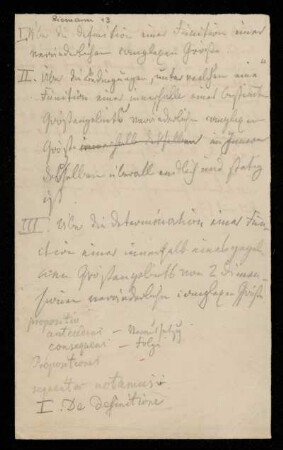 Riemann 13
I. Über die Definition einer Function einer
veränderlichen complexen Größe.
II. Über die Bedingungen, unter welchen eine
Function einer innerhalb eines
Größengebiets veränderlichen complexen
Größe innerhalb desselben
desselben überall endlich und stetig
ist
III. Über die Determination einer Func-
tion einer innerhalb eines
Größengebiets von 2 Dimen-
sionen veränderlichen complexen Größe
propositio
antecedens – Voraussetzung
consequens – Folge
Propositiones
sequentes notamus:
I. De definitione